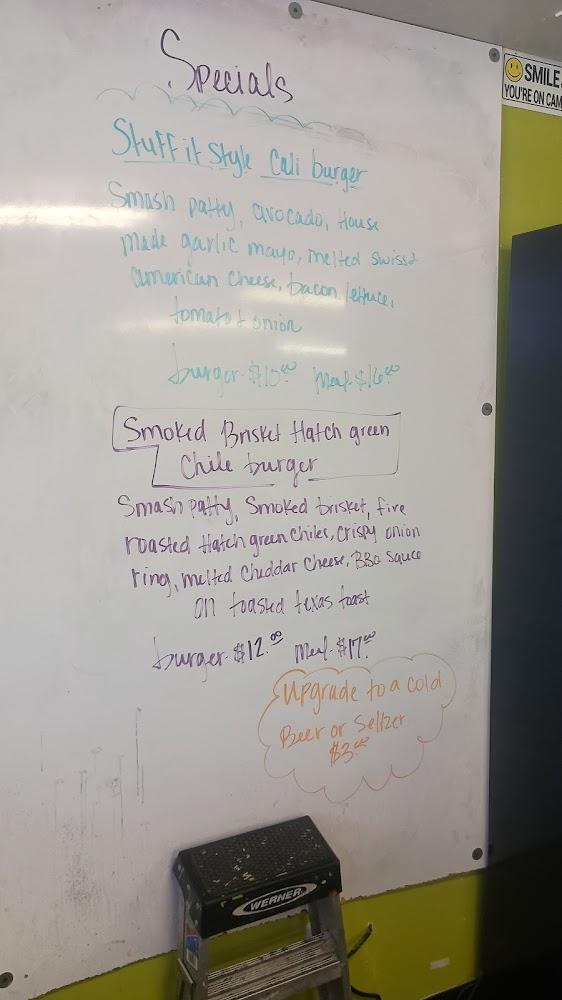 Specials
SMILE
YOU'RE ON CAM
Stuff it Style Cali burger
Smash patty, avocado, House
made garlic mayo, melted swiss &
american cheese, bacon, lettuce,
tomato & onion
burger - $10.00 Meal - $16.00
Smoked Brisket Hatch green
Chile burger
Smash patty, Smoked brisket, fire
roasted Hatch green chiles, crispy onion
ring, melted cheddar cheese, BBQ sauce
on toasted texas toast
burger - $12.00 Meal - $17.00
Upgrade to a cold
Beer or Seltzer
$3.00
WERNER